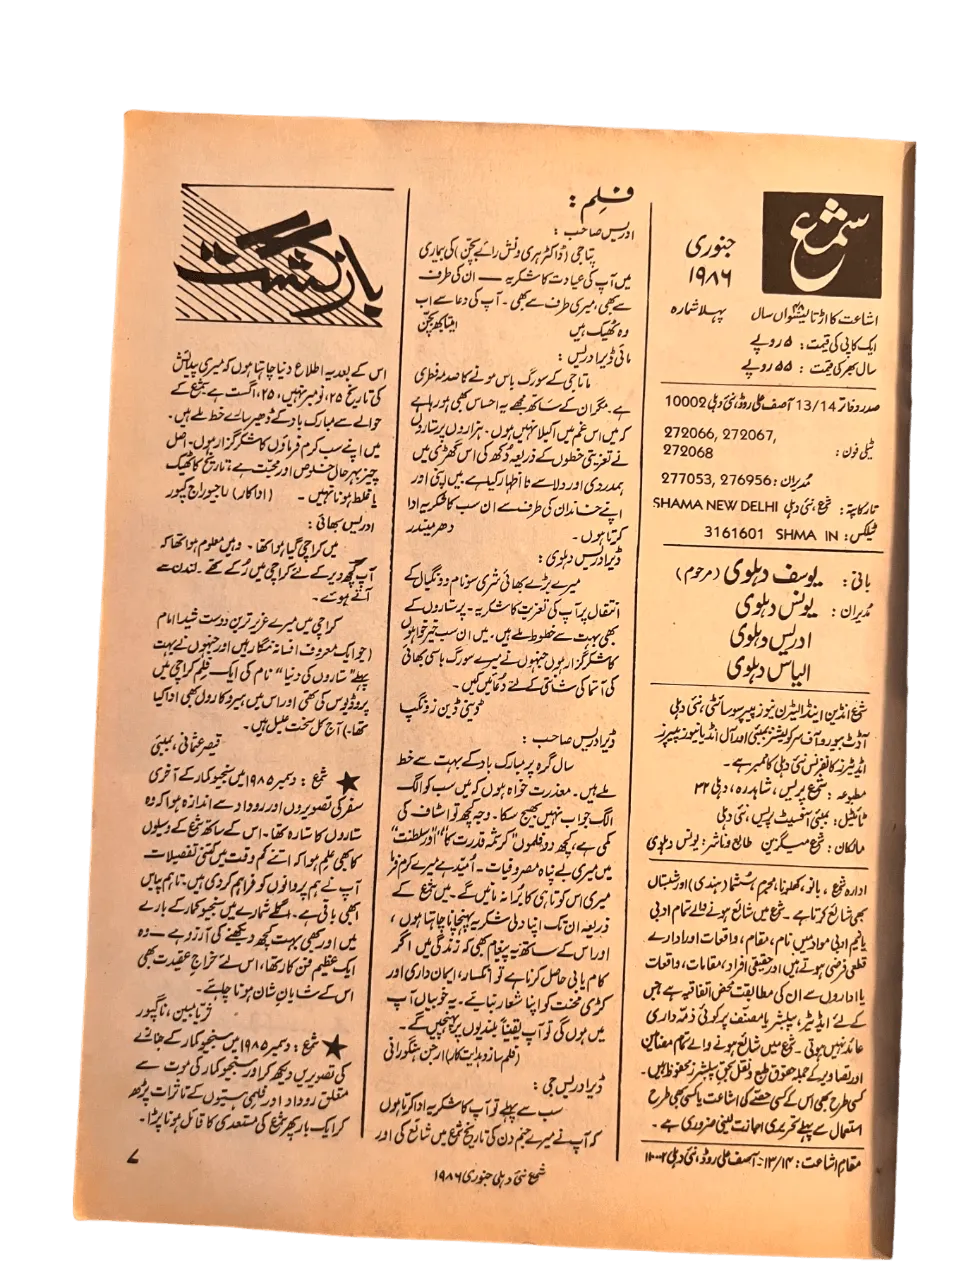 شمع
جنوری
۱۹۸۶
اشاعت کا اڑتالیسواں سال ۴۸ پہلا شمارہ
ایک کاپی کی قیمت: ۵ روپے
سال بھر کی قیمت: ۵۵ روپے
صدر دفاتر 13/14 آصف علی روڈ، نئی دہلی 10002
ٹیلی فون: 272066, 272067,
272068
مدیران: 276956 ,277053
تار کا پتہ: شمع، نئی دہلی SHAMA NEW DELHI
ٹیلکس: 3161601 SHMA IN
بانی: یوسف دہلوی (مرحوم)
مدیران: یونس دہلوی
ادریس دہلوی
الیاس دہلوی
شمع انڈین اینڈ ایسٹرن نیوز پیپر سوسائٹی، نئی دہلی
آڈٹ بیورو آف سرکولیشنز بمبئی اور آل انڈیا نیوز پیپرز
ایڈیٹرز کانفرنس نئی دہلی کا ممبر ہے۔
مطبوعہ: شمع پریس، شاہدرہ، دہلی ۳۲
ٹائیٹل: بمبئی آفسیٹ پریس، نئی دہلی
مالکان: شمع میگزین طابع و ناشر: یونس دہلوی
ادارہ شمع، بانو، کھلونا، مجرم، سُشما (ہندی) اور شبستاں
بھی شائع کرتا ہے۔ شمع میں شائع ہونے والے تمام ادبی
یا نیم ادبی مواد میں نام، مقام، واقعات اور ادارے
قطعی فرضی ہوتے ہیں اور حقیقی افراد، مقامات، واقعات
یا اداروں سے ان کی مطابقت محض اتفاقیہ ہے جس
کے لیے ایڈیٹر، پبلشر یا مصنف پر کوئی ذمہ داری
عائد نہیں ہوتی۔ شمع میں شائع ہونے والے تمام مضامین
اور تصاویر کے جملہ حقوق طبع و نقل بحق پبلشرز محفوظ ہیں۔
کسی طرح بھی اس کے کسی حصے کی اشاعت یا کسی بھی طرح
استعمال سے پہلے تحریری اجازت لینی ضروری ہے۔
مقام اشاعت: ۱۳/۱۴۔ آصف علی روڈ، نئی دہلی ۱۱۰۰۰۲
فلم:
ادریس صاحب:
پتا جی (ڈاکٹر ہری ونش رائے بچن) کی بیماری
میں آپ کی عیادت کا شکریہ — ان کی طرف
سے بھی، میری طرف سے بھی۔ آپ کی دعا سے اب
وہ ٹھیک ہیں امیتابھ بچن
مائی ڈیر ادریس:
ماتا جی کے سورگ باس ہونے کا صدمہ فطری
ہے۔ مگر ان کے ساتھ مجھے یہ احساس بھی ہو رہا ہے
کہ میں اس غم میں اکیلا نہیں ہوں۔ ہزاروں پرستاروں
نے تعزیتی خطوں کے ذریعہ دُکھ کی اس گھڑی میں
ہمدردی اور دلاسے کا اظہار کیا ہے۔ میں اپنی اور
اپنے خاندان کی طرف سے ان سب کا شکریہ ادا
کرتا ہوں۔ دھرمیندر
ڈیر ادریس دہلوی:
میرے بڑے بھائی شری سونام ڈینزنگپا کے
انتقال پر آپ کی تعزیت کا شکریہ۔ پرستاروں کے
بھی بہت سے خطوط ملے ہیں۔ میں ان سب خیر خواہوں
کا شکر گزار ہوں جنہوں نے میرے سورگ باسی بھائی
کی آتما کی شانتی کے لئے دُعائیں کیں۔
ڈینی ڈینزونگپا
ڈیر ادریس صاحب:
سال گرہ پر مبارک باد کے بہت سے خط
ملے ہیں۔ معذرت خواہ ہوں کہ میں سب کو الگ
الگ جواب نہیں بھیج سکا۔ وجہ کچھ تو اسٹاف کی
کمی ہے، کچھ دو فلموں "کرشمہ قدرت کا" اور "سلطنت"
میں میری بے پناہ مصروفیات۔ اُمید ہے میرے کرم فرما
میری اس کوتاہی کا بُرا نہ مانیں گے۔ میں شمع کے
ذریعہ اُن تک اپنا دلی شکریہ پہنچانا چاہتا ہوں،
اور اس کے ساتھ یہ پیغام بھی کہ زندگی میں اگر
کام یابی حاصل کرنا ہے تو انکسار، ایمان داری اور
کڑی محنت کو اپنا شعار بنائیے۔ یہ خوبیاں آپ
میں ہوں گی تو آپ یقیناً بلندیوں پر پہنچیں گے۔
(فلم ساز و ہدایت کار) ارجن ہنگورانی
ڈیر ادریس جی:
سب سے پہلے تو آپ کا شکریہ ادا کرتا ہوں
کہ آپ نے میرے جنم دن کی تاریخ شمع میں شائع کی اور
بازگشت
اس کے بعد یہ اطلاع دینا چاہتا ہوں کہ میری پیدائش
کی تاریخ ۲۵، نومبر نہیں، ۲۵، اگست ہے۔ شمع کے
حوالے سے مبارک باد کے ڈھیر سارے خط ملے ہیں۔
میں اپنے سب کرم فرماؤں کا شکر گزار ہوں۔ اصل
چیز بہر حال خلوص اور محبت ہے، تاریخ کا ٹھیک
یا غلط ہونا نہیں۔ (اداکار) راجیو راج کپور
ادریس بھائی:
میں کراچی گیا ہوا تھا۔ وہیں معلوم ہوا تھا کہ
آپ کچھ دیر کے لئے کراچی میں رُکے تھے۔ لندن سے
آتے ہوئے۔
کراچی میں میرے عزیز ترین دوست شیدا امام
(جو ایک معروف افسانہ نگار ہیں اور جنہوں نے بہت
پہلے "ستاروں کی دنیا" نام کی ایک فلم کراچی میں
پروڈیوس کی تھی اور اس میں ہیرو کا رول بھی ادا کیا
تھا۔) آج کل سخت علیل ہیں۔
قیصر عثمانی، بمبئی
★ شمع: دسمبر ۱۹۸۵ میں سنجیو کمار کے آخری
سفر کی تصویروں اور روداد سے اندازہ ہوا کہ وہ
ستاروں کا ستارہ تھا۔ اس کے ساتھ شمع کے وسیلوں
کا بھی علم ہوا کہ اتنے کم وقت میں کتنی تفصیلات
آپ نے ہم پروانوں کو فراہم کر دی ہیں۔ تاہم پیاس
ابھی باقی ہے۔ اگلے شمارے میں سنجیو کمار کے بارے
میں اور بھی بہت کچھ دیکھنے کی آرزو ہے — وہ
ایک عظیم فن کار تھا، اس لئے خراجِ عقیدت بھی
اس کے شایانِ شان ہونا چاہئے۔
ثریا مبین، ناگپور
★ شمع: دسمبر ۱۹۸۵ میں سنجیو کمار کے جنازے
کی تصویریں دیکھ کر اور سنجیو کمار کی موت سے
متعلق روداد اور فلمی ہستیوں کے تاثرات پڑھ
کر ایک بار پھر شمع کی مستعدی کا قائل ہونا پڑا۔
شمع نئی دہلی جنوری ۱۹۸۶
۷